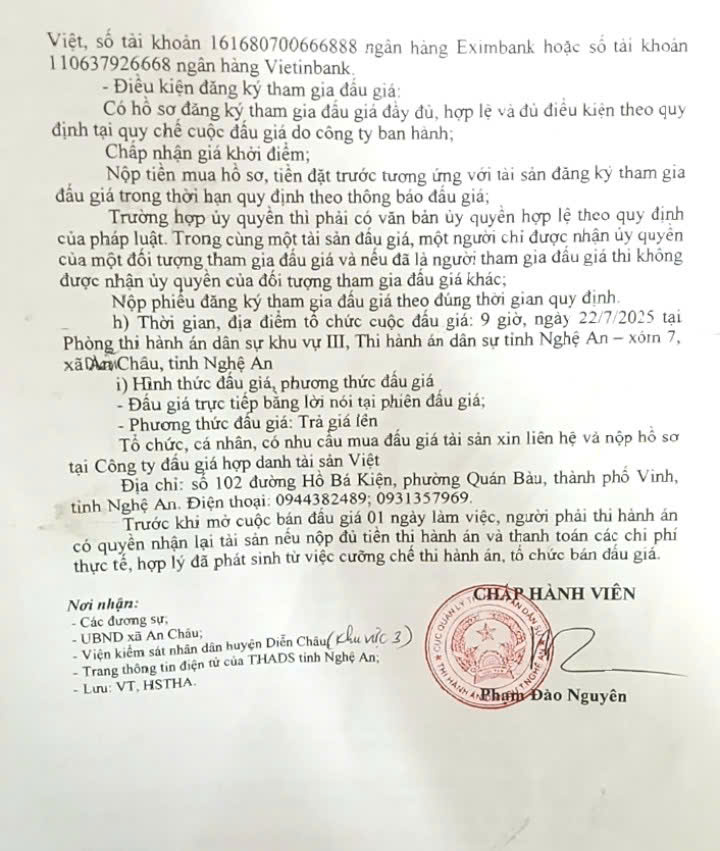 Việt, số tài khoản 161680700666888 ngân hàng Eximbank hoặc số tài khoản
110637926668 ngân hàng Vietinbank.
- Điều kiện đăng ký tham gia đấu giá:
Có hồ sơ đăng ký tham gia đấu giá đầy đủ, hợp lệ và đủ điều kiện theo quy
định tại quy chế cuộc đấu giá do công ty ban hành;
Chấp nhận giá khởi điểm;
Nộp tiền mua hồ sơ, tiền đặt trước tương ứng với tài sản đăng ký tham gia
đấu giá trong thời hạn quy định theo thông báo đấu giá;
Trường hợp ủy quyền thì phải có văn bản ủy quyền hợp lệ theo quy định
của pháp luật. Trong cùng một tài sản đấu giá, một người chỉ được nhận ủy quyền
của một đối tượng tham gia đấu giá và nếu đã là người tham gia đấu giá thì không
được nhận ủy quyền của đối tượng tham gia đấu giá khác;
Nộp phiếu đăng ký tham gia đấu giá theo đúng thời gian quy định.
h) Thời gian, địa điểm tổ chức cuộc đấu giá: 9 giờ, ngày 22/7/2025 tại
Phòng thi hành án dân sự khu vự III, Thi hành án dân sự tỉnh Nghệ An – xóm 7,
xã An Châu, tỉnh Nghệ An
i) Hình thức đấu giá, phương thức đấu giá
- Đấu giá trực tiếp bằng lời nói tại phiên đấu giá;
- Phương thức đấu giá: Trả giá lên
Tổ chức, cá nhân, có nhu cầu mua đấu giá tài sản xin liên hệ và nộp hồ sơ
tại Công ty đấu giá hợp danh tài sản Việt
Địa chỉ: số 102 đường Hồ Bá Kiện, phường Quán Bàu, thành phố Vinh,
tỉnh Nghệ An. Điện thoại: 0944382489; 0931357969.
Trước khi mở cuộc bán đấu giá 01 ngày làm việc, người phải thi hành án
có quyền nhận lại tài sản nếu nộp đủ tiền thi hành án và thanh toán các chi phí
thực tế, hợp lý đã phát sinh từ việc cưỡng chế thi hành án, tổ chức bán đấu giá.
Nơi nhận:
- Các đương sự;
- UBND xã An Châu;
- Viện kiểm sát nhân dân huyện Diễn Châu (Khu vực 3)
- Trang thông tin điện tử của THADS tỉnh Nghệ An;
- Lưu: VT, HSTHA.
CHẤP HÀNH VIÊN
Phạm Đào Nguyên